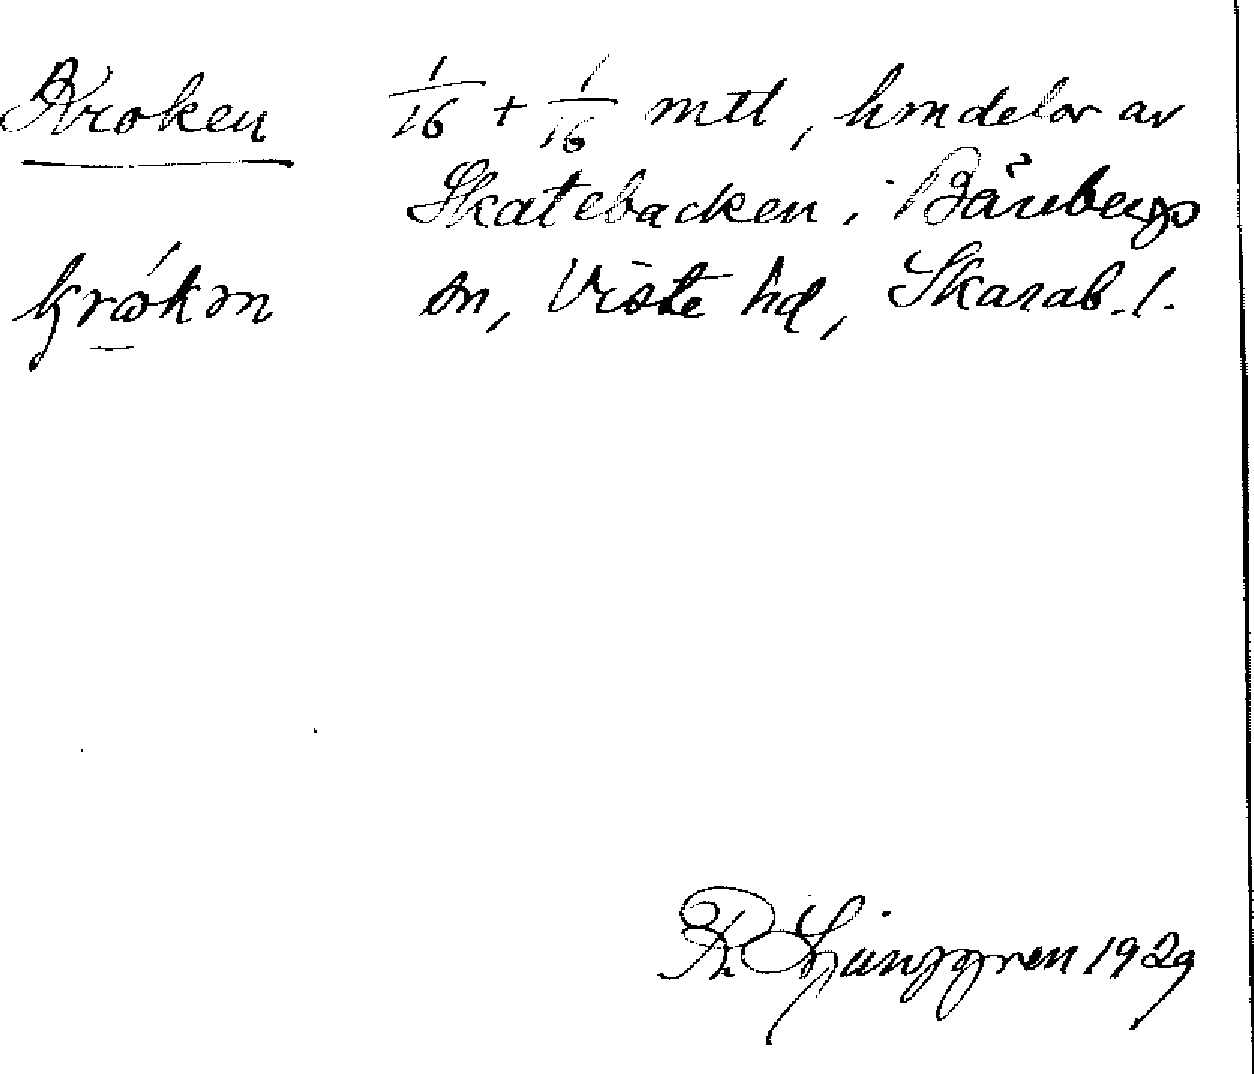 Kroken 1/16 + 1/16 mtl, hmdelar av
Skatebacken i Bärebergs
krókən sn, Viste hd, Skarab. l.
R Ljunggren 1929